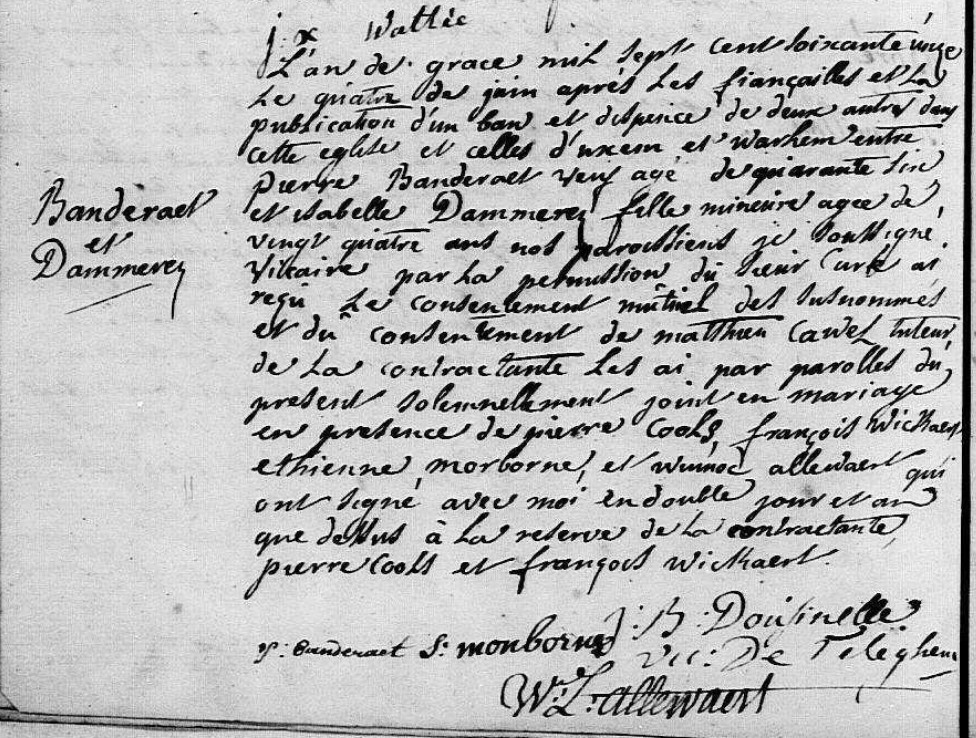 j: x Wallée
L'an de grace mil sept cent soixante unze
Le quatre de juin aprés les fiançailles et la
publication d'un ban et dispence de deux autres dans
cette eglise et celles d'uxem et warhem entre
pierre Banderaet veuf agé de quarante six
et isabelle Dammerey fille mineure agee de
vingt quatre ans nos paroissiens je soussigné
Vicaire par la permission du sieur Curé ai
reçu le consentement mûtuel des susnommés
et du consentement de matthieu Cawel tuteur
de la contractante les ai par parolles du
present solemnellement joint en mariage
en presence de pierre Cools, françois Wickaert
ethienne morborne, et winnoc allewaert qui
ont signé avec moi en double jour et an
que dessus à la reserve de la contractante
pierre Cools et françois Wickaert.
Banderaet
et
Dammerey
p: banderaet S: monborne J: B: Dousinelle
vic: De Teteghem
W: L: allewaert